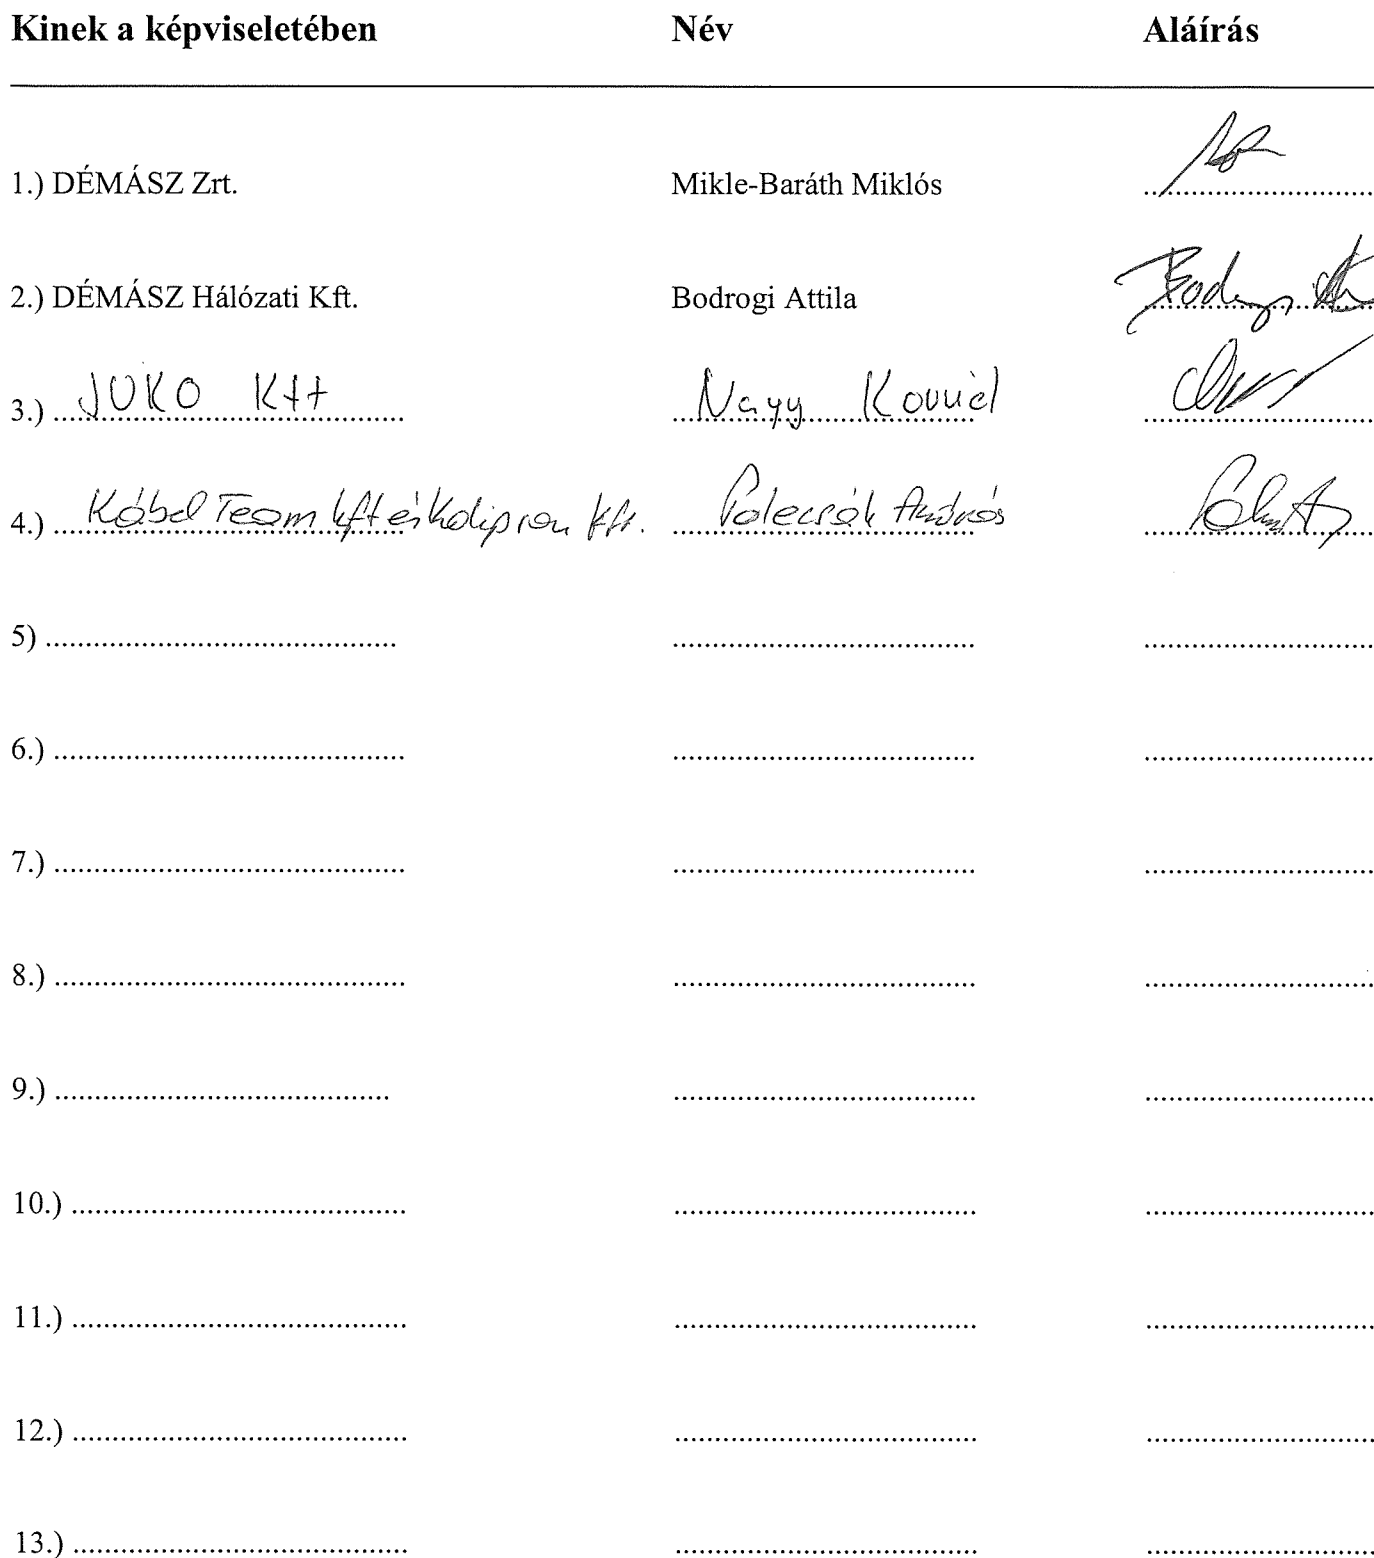 Kinek a képviseletében Név Aláírás
1.) DÉMÁSZ Zrt. Mikle-Baráth Miklós ..............................
2.) DÉMÁSZ Hálózati Kft. Bodrogi Attila Bodrogi ..............................
3.) JUKO Kft Nagy Kornél ..............................
4.) Kábel Team kft és Kalipron kft. Polecsák András ..............................
5) ............................................ ...................................... ..............................
6.) ............................................ ...................................... ..............................
7.) ............................................ ...................................... ..............................
8.) ............................................ ...................................... ..............................
9.) .......................................... ...................................... ..............................
10.) .......................................... ...................................... ..............................
11.) .......................................... ...................................... ..............................
12.) .......................................... ...................................... ..............................
13.) .......................................... ...................................... ..............................